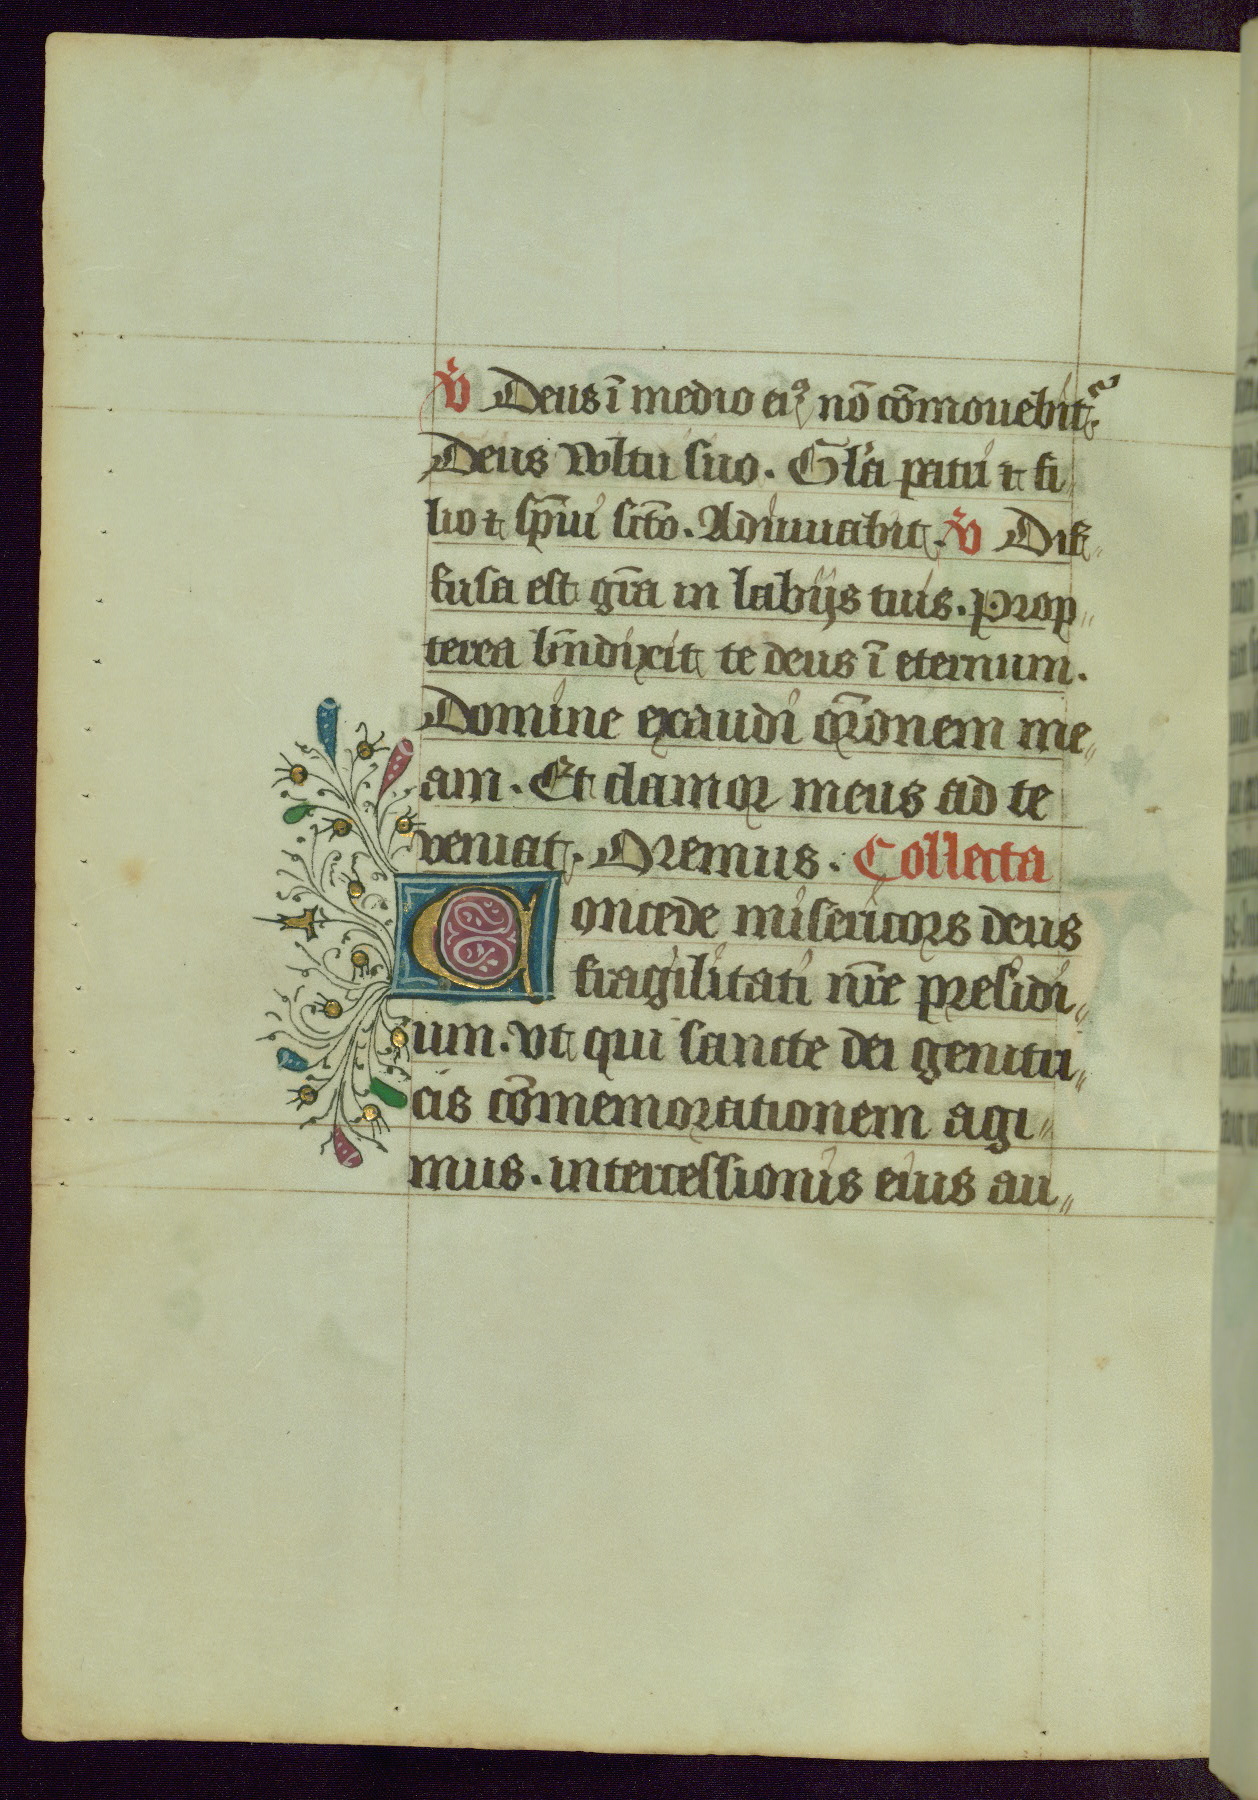 v̄ Deus ī medio eiꝰ nō cōmouebit᷑.
Deus vultu suo. Gl'a patri ⁊ fi
lio ⁊ sp̄iui scto. Adiuuabit. v̄ Dif„
fusa est gr̄a in labijs tuis. prop„
terea bn̄dixit te deus ī eternum.
Domine exaudi or̄onem me„
am. Et clamor meus ad te
veniat. Oremus. Collecta
Concede misericors deus
fragilitati nr̄e presidi„
um. vt qui sancte dei genitri„
cis cōmemorationem agi„
mus. intercessionis eius au„